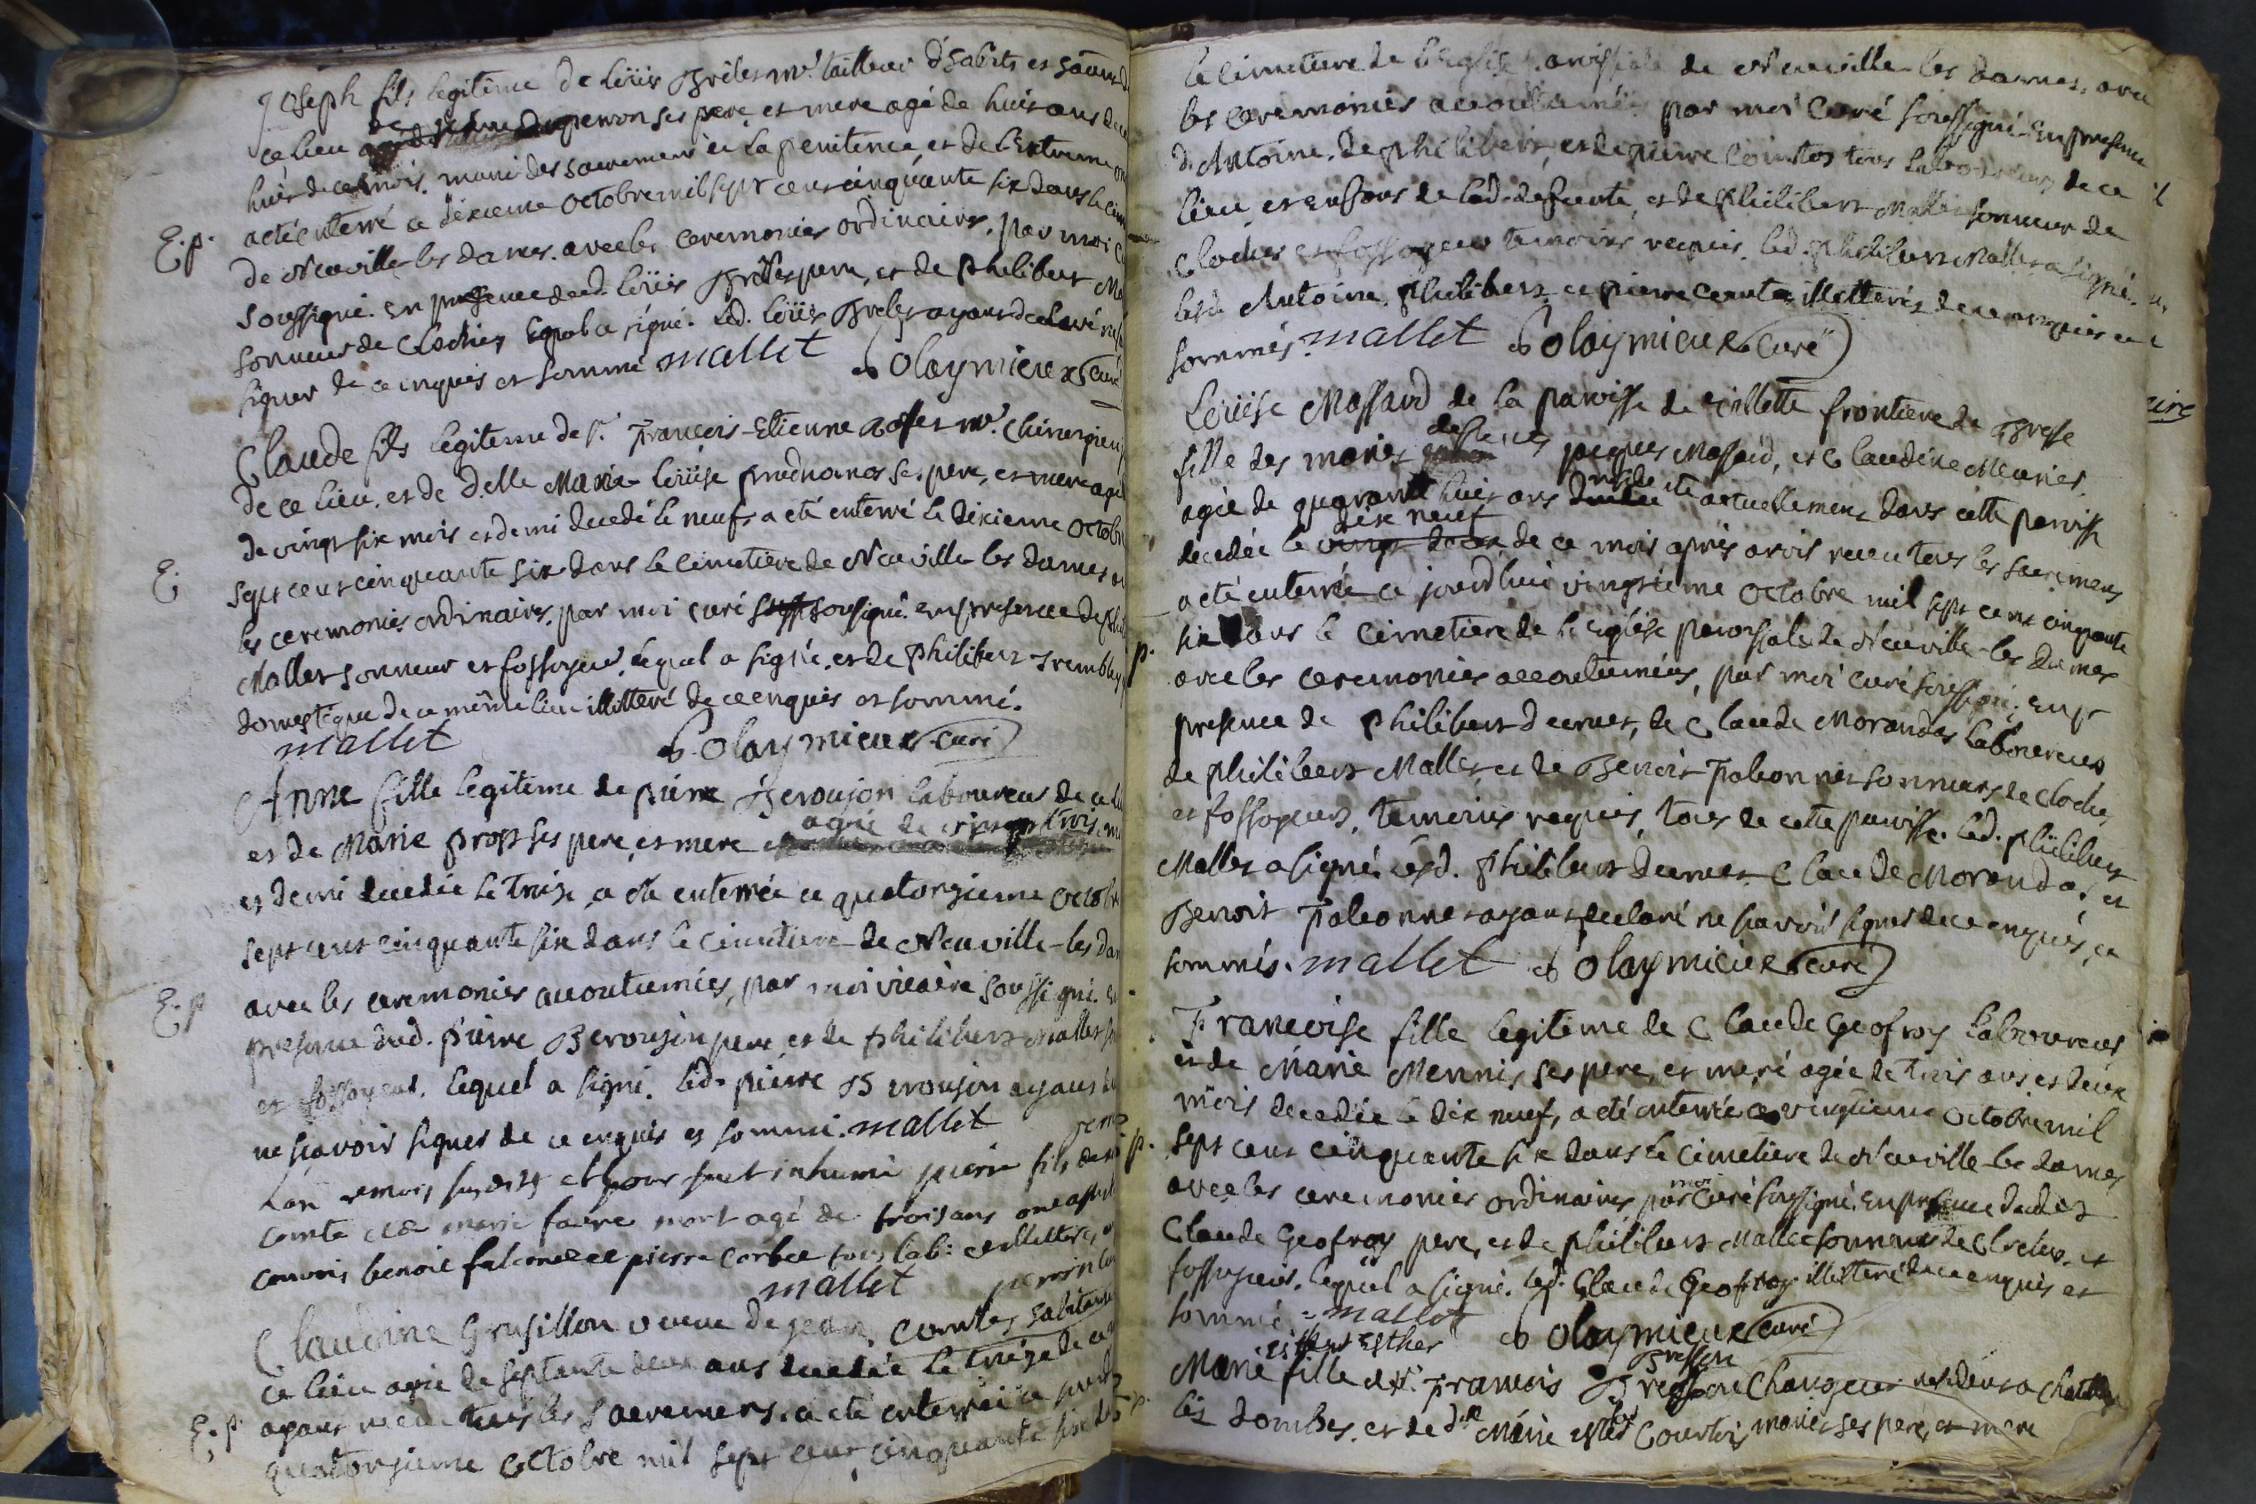 Joseph fils legitime de Loüis Brêlet m.e tailleur d'habits et
ce lieu de peron ses pere, et mere agé de huit ans
huit de ce mois. muni des sacremens de La penitence et de L'Extreme
E. p. a eté enterré ce dixieme Octobre mil sept cent cinquante six dans le
de Neuville les dames. avec les ceremonies ordinaires. par moi
soussigné. En presence dud. Loüis Brêlet pere, et de philibert
sonneur de cloches Lequel a signé. Led. Loüis Brelet ayant declaré
signer de ce enquis et sommé mallet Olaymieux curé
Claude fils legitime de s.r François-Etienne m.e chirurgien
de ce lieu. et de d.elle Marie-Loüise prudhomes ses pere, et mere agé
de vingt six mois et demi decedé le neuf, a eté enterré Le dixieme Octobre
E. sept cent cinquante six dans le cimetiere de Neuville les dames
les ceremonies ordinaires. par moi curé soussigné. en presence de
Mallet sonneur et fossoyeur, Lequel a signé. et de Philibert Tremblay
domestique de ce même lieu illitteré de ce enquis et sommé.
mallet Olaymieux curé
Anne fille legitime de pierre Beroujon laboureur de ce
et de Marie prost ses pere, et mere agée de vingt trois
et demi decedée Le treize, a eté enterrée ce quatorzieme Octobre
sept cent cinquante six dans le cimetiere de Neuville-les
E. p avec les ceremonies accoutumées, par moi vicaire soussigné.
presence dud. Pierre Beroujon pere, et de Philibert Mallet
et fossoyeur. Lequel a signé. Led. pierre Beroujon ayant
ne sçavoir signer de ce enquis et sommé. mallet
L'an et mois susdits et jour fut inhumé pierre fils de
comte et de marie faure mort agé de trois ans
convoi benoit falconet et pierre corbet tous lab. et illitteré,
mallet
Claudine Grusillon veuve de jean, comtes habitant
ce lieu agée de septante deux ans decedée Le treize de ce
E. p ayant reçu tous les Sacremens. a eté enterrée ce
quatorzieme Octobre mil sept cent cinquante six
le cimetiere de L'Eglise paroissiale de Neuville-les dames. avec
les ceremonies accoutumées par moi Curé soussigné. En presence
d'Antoine. de philibert, et de pierre Comtes tous laboureurs de ce
lieu, et enfans de lad. defunte, et de Philibert Mallet sonneur de
cloches et fossoyeur temoins requis. led. Philibert Mallet a signé.
lesd. Antoine, philibert et pierre Comtes illitterés de ce enquis et
sommés. mallet Olaymieux curé
Loüise Massard de la paroisse de Villette frontiere de Bresse
fille des mariés defunts jacques Massard, et Claudine Meunier.
agée de quarante huit ans residente actuellement dans cette paroisse
decedée le dix neuf de ce mois après avoir receu tous les sacremens
a eté enterrée ce jourd'hui vingtieme Octobre mil sept cent cinquante
p. six dans le cimetiere de l'Eglise paroissiale de Neuville-les dames
avec les ceremonies accoutumées, par moi curé soussigné, en
presence de Philibert, de Claude Morandas Laboureurs
de Philibert Mallet, et de Benoit Falconnet sonneurs de cloches
et fossoyeurs, temoins requis, tous de cette paroisse. Led. Philibert
Mallet a signé. lesd. Philibert Claude Morandas, et
Benoit Falconnet ayant declaré ne sçavoir signer de ce enquis, et
sommés. mallet Olaymieux curé
Françoise fille legitime de Claude Geofroy Laboureur
et de Marie Mennis, ses pere, et mere agée de trois ans et deux
mois decedée le dix neuf, a eté enterrée ce vingtieme Octobre mil
p. sept cent cinquante six dans le cimetiere de Neuville-les dames
avec les ceremonies ordinaires par moi Curé soussigné. En presence dudit
Claude Geofroy pere, et de philibert Mallet sonneur de cloches, et
fossoyeur. Lequel a signé. led. Claude Geofroy illitteré de ce enquis et
sommé. mallet
Esther Olaymieux curé
Marie fille de s.r François Bresson residant a
les dombes. et de d.lle Marie Courtois mariés ses pere, et mere